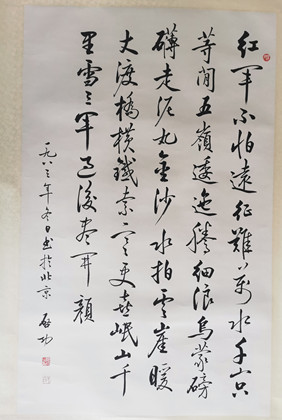 紅軍不怕遠征難万水千山只
等閒五嶺逶迤騰細浪烏蒙磅
礴走泥丸金沙水拍雲崖暖
大渡橋橫鐵索寒更喜岷山千
里雪三軍過後盡開顏
一九八三年冬日書於北京 啟功